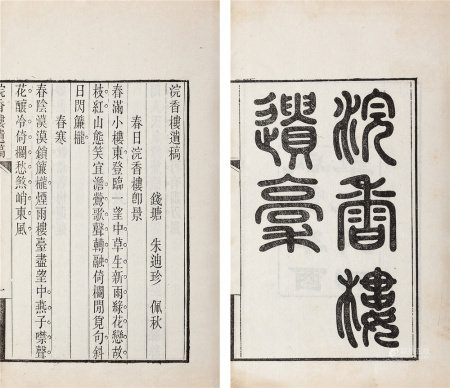 浣香樓
遺稾
浣香樓遺稿
錢塘 朱迪珍 佩秋
春日浣香樓卽景
春滿小樓東登臨一望中草生新雨綠花戀故
枝紅山態笑宜澹鶯歌聲轉融倚欄閒覓句斜
日閃簾櫳
春寒
春陰漠漠鎖簾櫳煙雨樓臺盡望中燕子噤聲
花釀冷倚欄愁煞峭東風
浣香樓遺稿